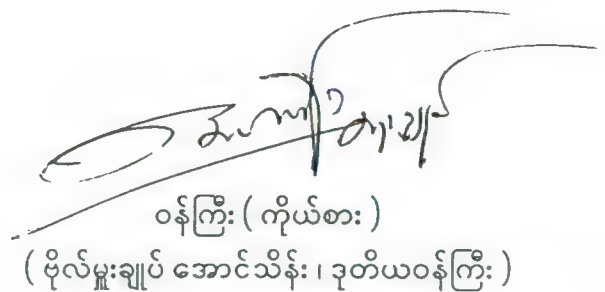 ဝန်ကြီး ( ကိုယ်စား )
( ဗိုလ်မှူးချုပ် အောင်သိန်း ၊ ဒုတိယဝန်ကြီး )